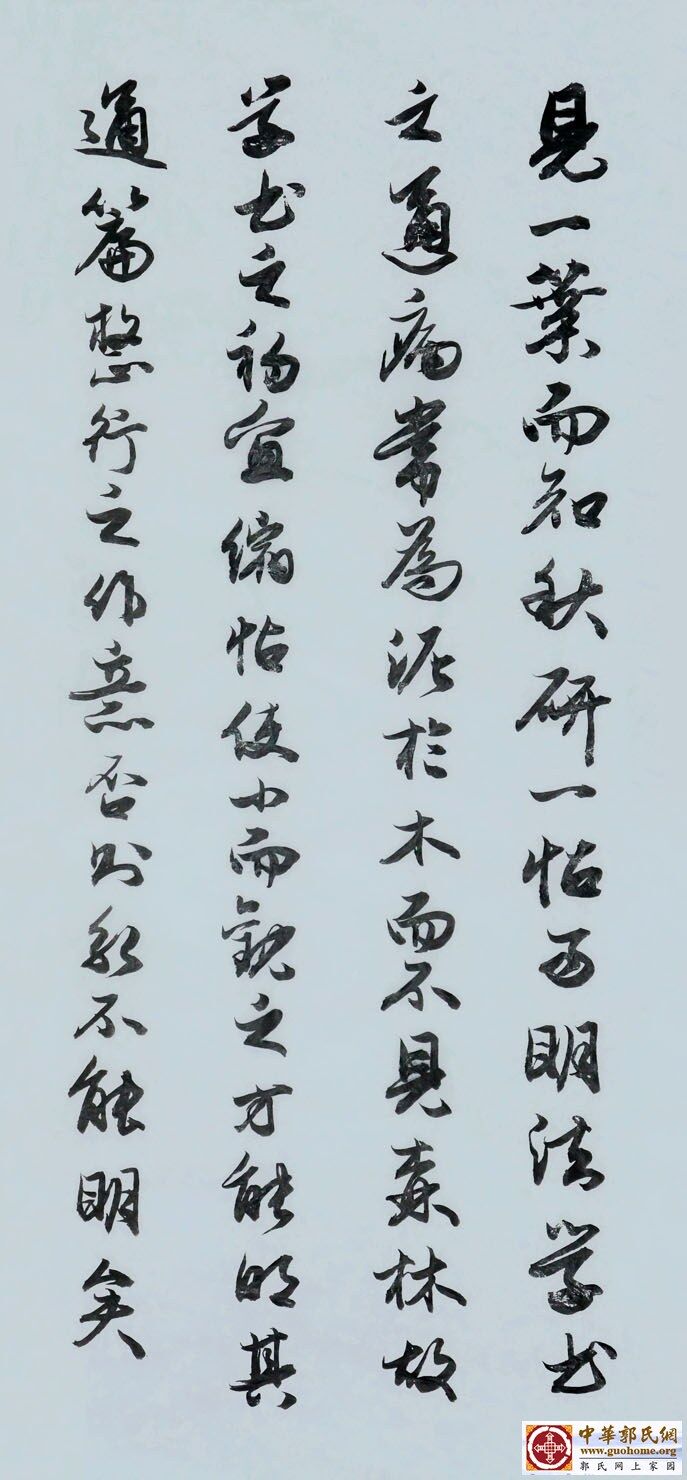 見一葉而知秋研一帖而明法学书
之通病常為泥於木而不見森林故
学书之初宜缩帖使小而觀之方能明其
通篇整行之作意否则永不能明矣
中華郭氏網
www.guohome.org
郭氏网上家园